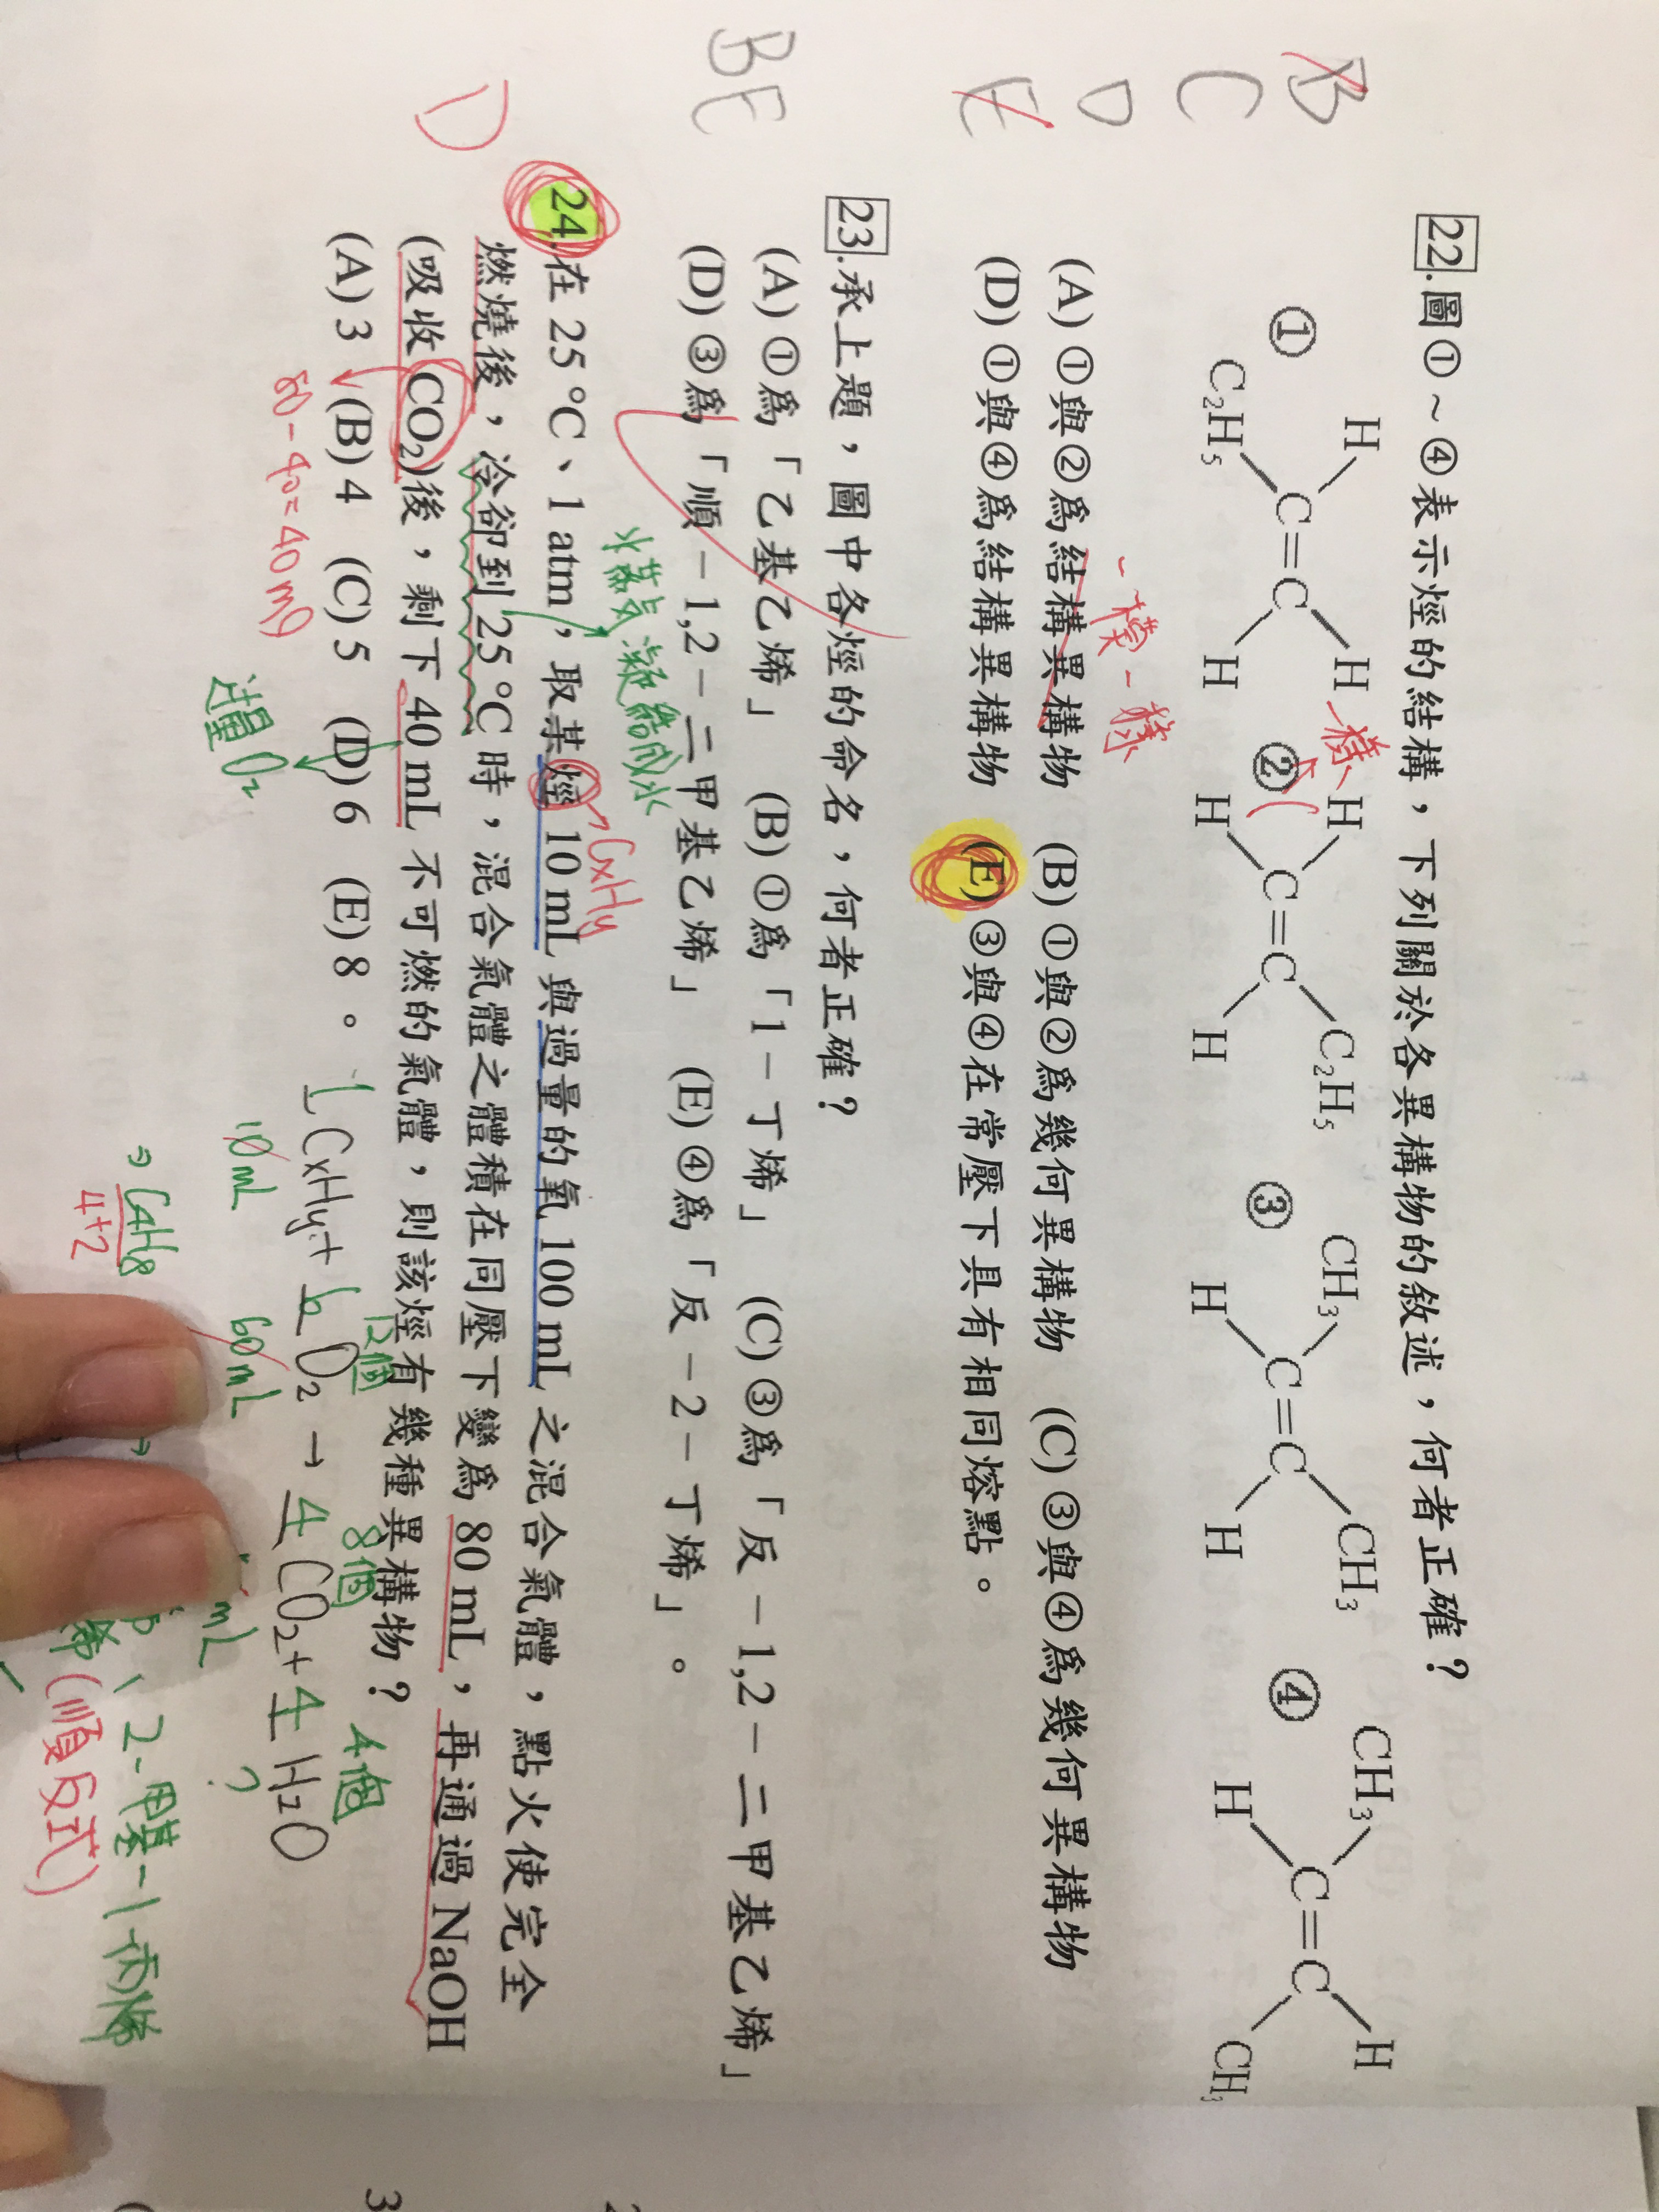 B
C
D
E
22.圖①~④表示烴的結構，下列關於各異構物的敘述，何者正確？
① H H C=C C₂H₅ H
② H C₂H₅ C=C H H
③ CH₃ CH₃ C=C H H
④ CH₃ H C=C H CH₃
一樣
一模一樣
(A)①與②為結構異構物 (B)①與②為幾何異構物 (C)③與④為幾何異構物
(D)①與④為結構異構物 (E)③與④在常壓下具有相同熔點。
BE
23.承上題，圖中各烴的命名，何者正確？
(A)①為「乙基乙烯」 (B)①為「1－丁烯」 (C)③為「反－1,2－二甲基乙烯」
(D)③為「順－1,2－二甲基乙烯」 (E)④為「反－2－丁烯」。
水蒸氣凝結成水
CxHy
D
24.在 25 °C、1 atm，取某烴 10 mL 與過量的氧 100 mL 之混合氣體，點火使完全
燃燒後，冷卻到 25 °C 時，混合氣體之體積在同壓下變為 80 mL，再通過 NaOH
(吸收 CO₂)後，剩下 40 mL 不可燃的氣體，則該烴有幾種異構物？
(A) 3 (B) 4 (C) 5 (D) 6 (E) 8。
80-40=40ml
過量O₂
12個 8個 4個
1 CxHy + 6 O₂ → 4 CO₂ + 4 H₂O
10mL 60mL mL ?
⇒ C4H8
4+2
2-甲基-1-丙烯
烯(順反式)
3